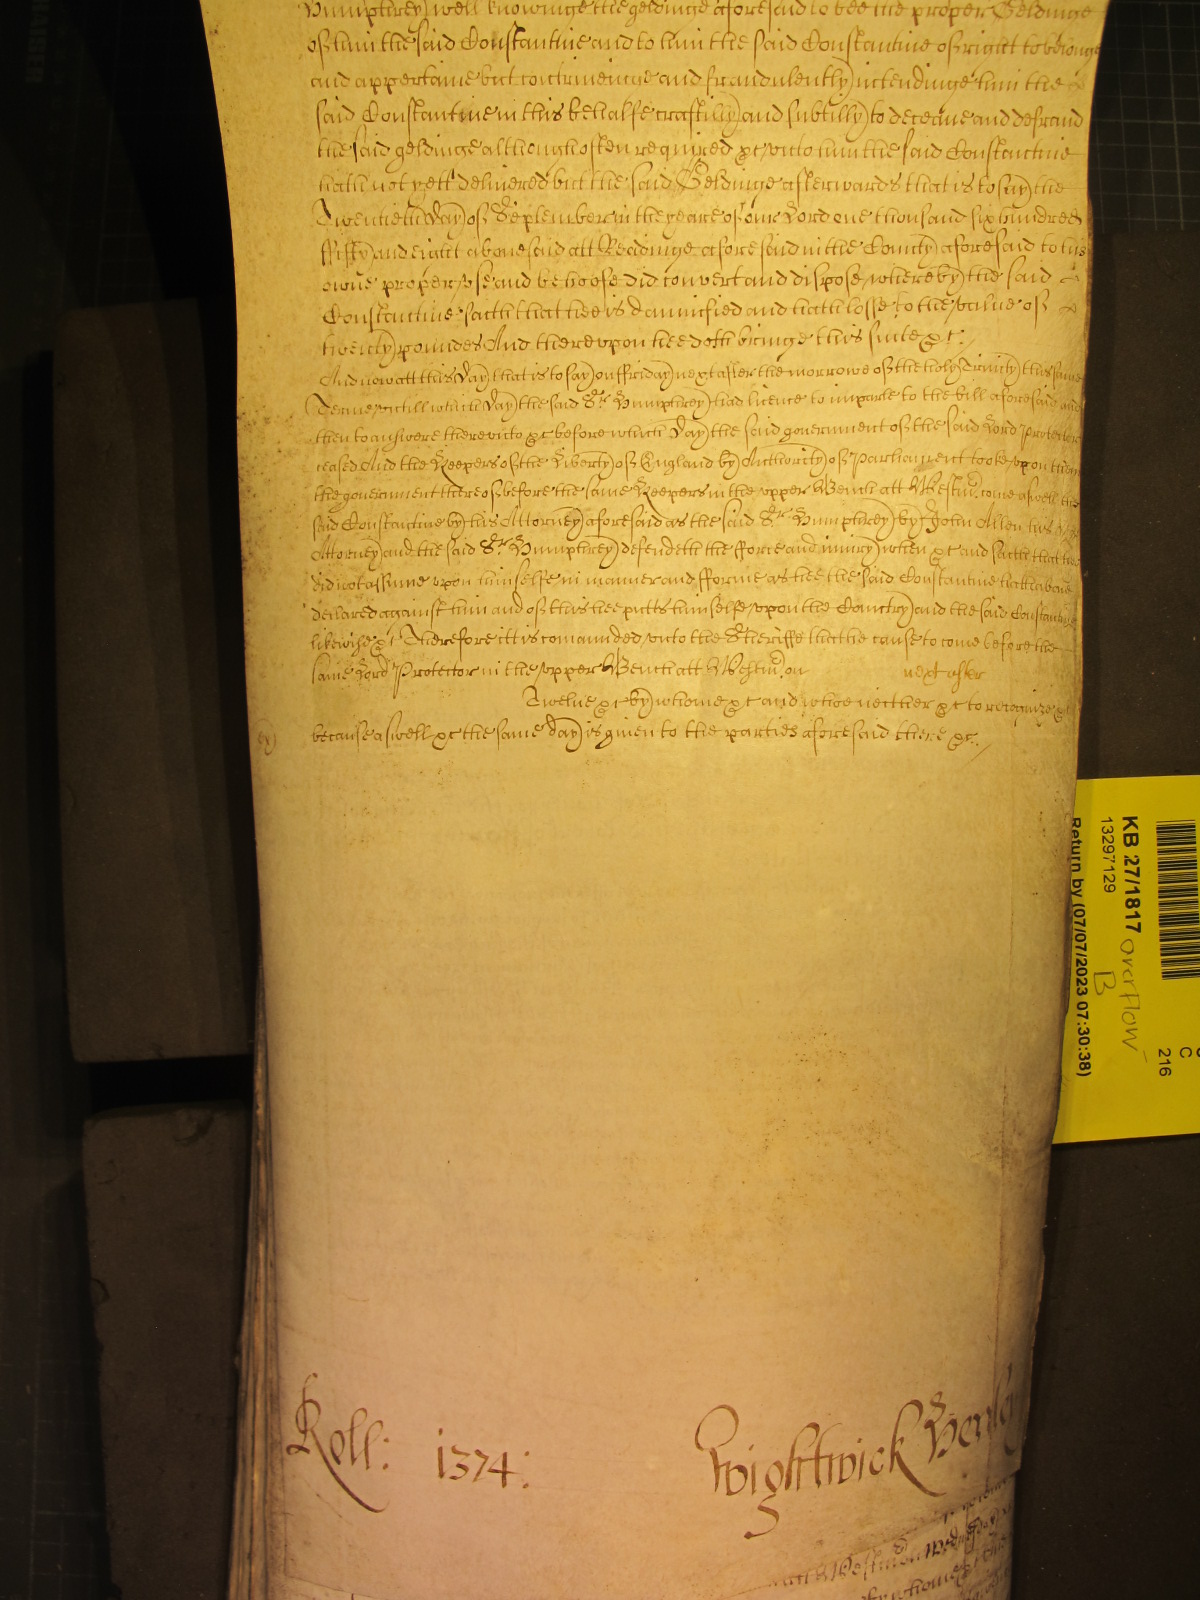 Humphrey) well knowinge the geldinge aforesaid to bee the proper Geldinge
of him the said Constantine and to him the said Constantine of right to belonge
and appertaine but contriveinge and fraudulently intendinge him the
said Constantine in this behalfe craftilly and subtilly to deceave and defraud
the said geldinge although often required &c unto him the said Constantine
hath not yett delivered but the said Geldinge afterwards that is to say the
Twentieth Day of September in the yeare of our Lord one thousand six hundred
ffifty and eight abovesaid att Readinge aforesaid in the County aforesaid to his
owne proper use and behoofe did convert and dispose whereby the said
Constantine saith that hee is damnified and hath losse to the value of
twenty poundes And thereupon hee doth bringe this suite &c.
And now att this Day that is to say on ffriday next after the morrowe of the holy Trinity this same
Terme untill which Day the said Sr. Humphrey had licence to imparle to the bill aforesaid and
then to answere thereunto &c before which Day the said government of the said Lord Protector
ceased And the Keepers of the Liberty of England by Authority of Parliament tooke upon them
the government thereof before the same Keepers in the upper Bench att Westm. come aswell the
said Constantine by his Attorney aforesaid as the said Sr. Humphrey by John Allen his
Attorney and the said Sr. Humphrey defendeth the fforce and iniury when &c and saith that hee
did not assume upon himselfe in manner and fforme as hee the said Constantine hath above
declared against him and of this hee putts himselfe upon the Countrey and the said Constantine
likewise &c Therefore itt is comaunded unto the Sheriffe that he cause to come before the
same Lord Protector in the upper Bench att Westm. on next after
Twelve &c by whome &c and whoe neither &c to recognize &c
because aswell &c the same day is given to the parties aforesaid there &c.
Roll: 1374:
Wightwick Henley
KB 27/1817
13297129
overflow
B
Return by (07/07/2023 07:30:38)
C
216